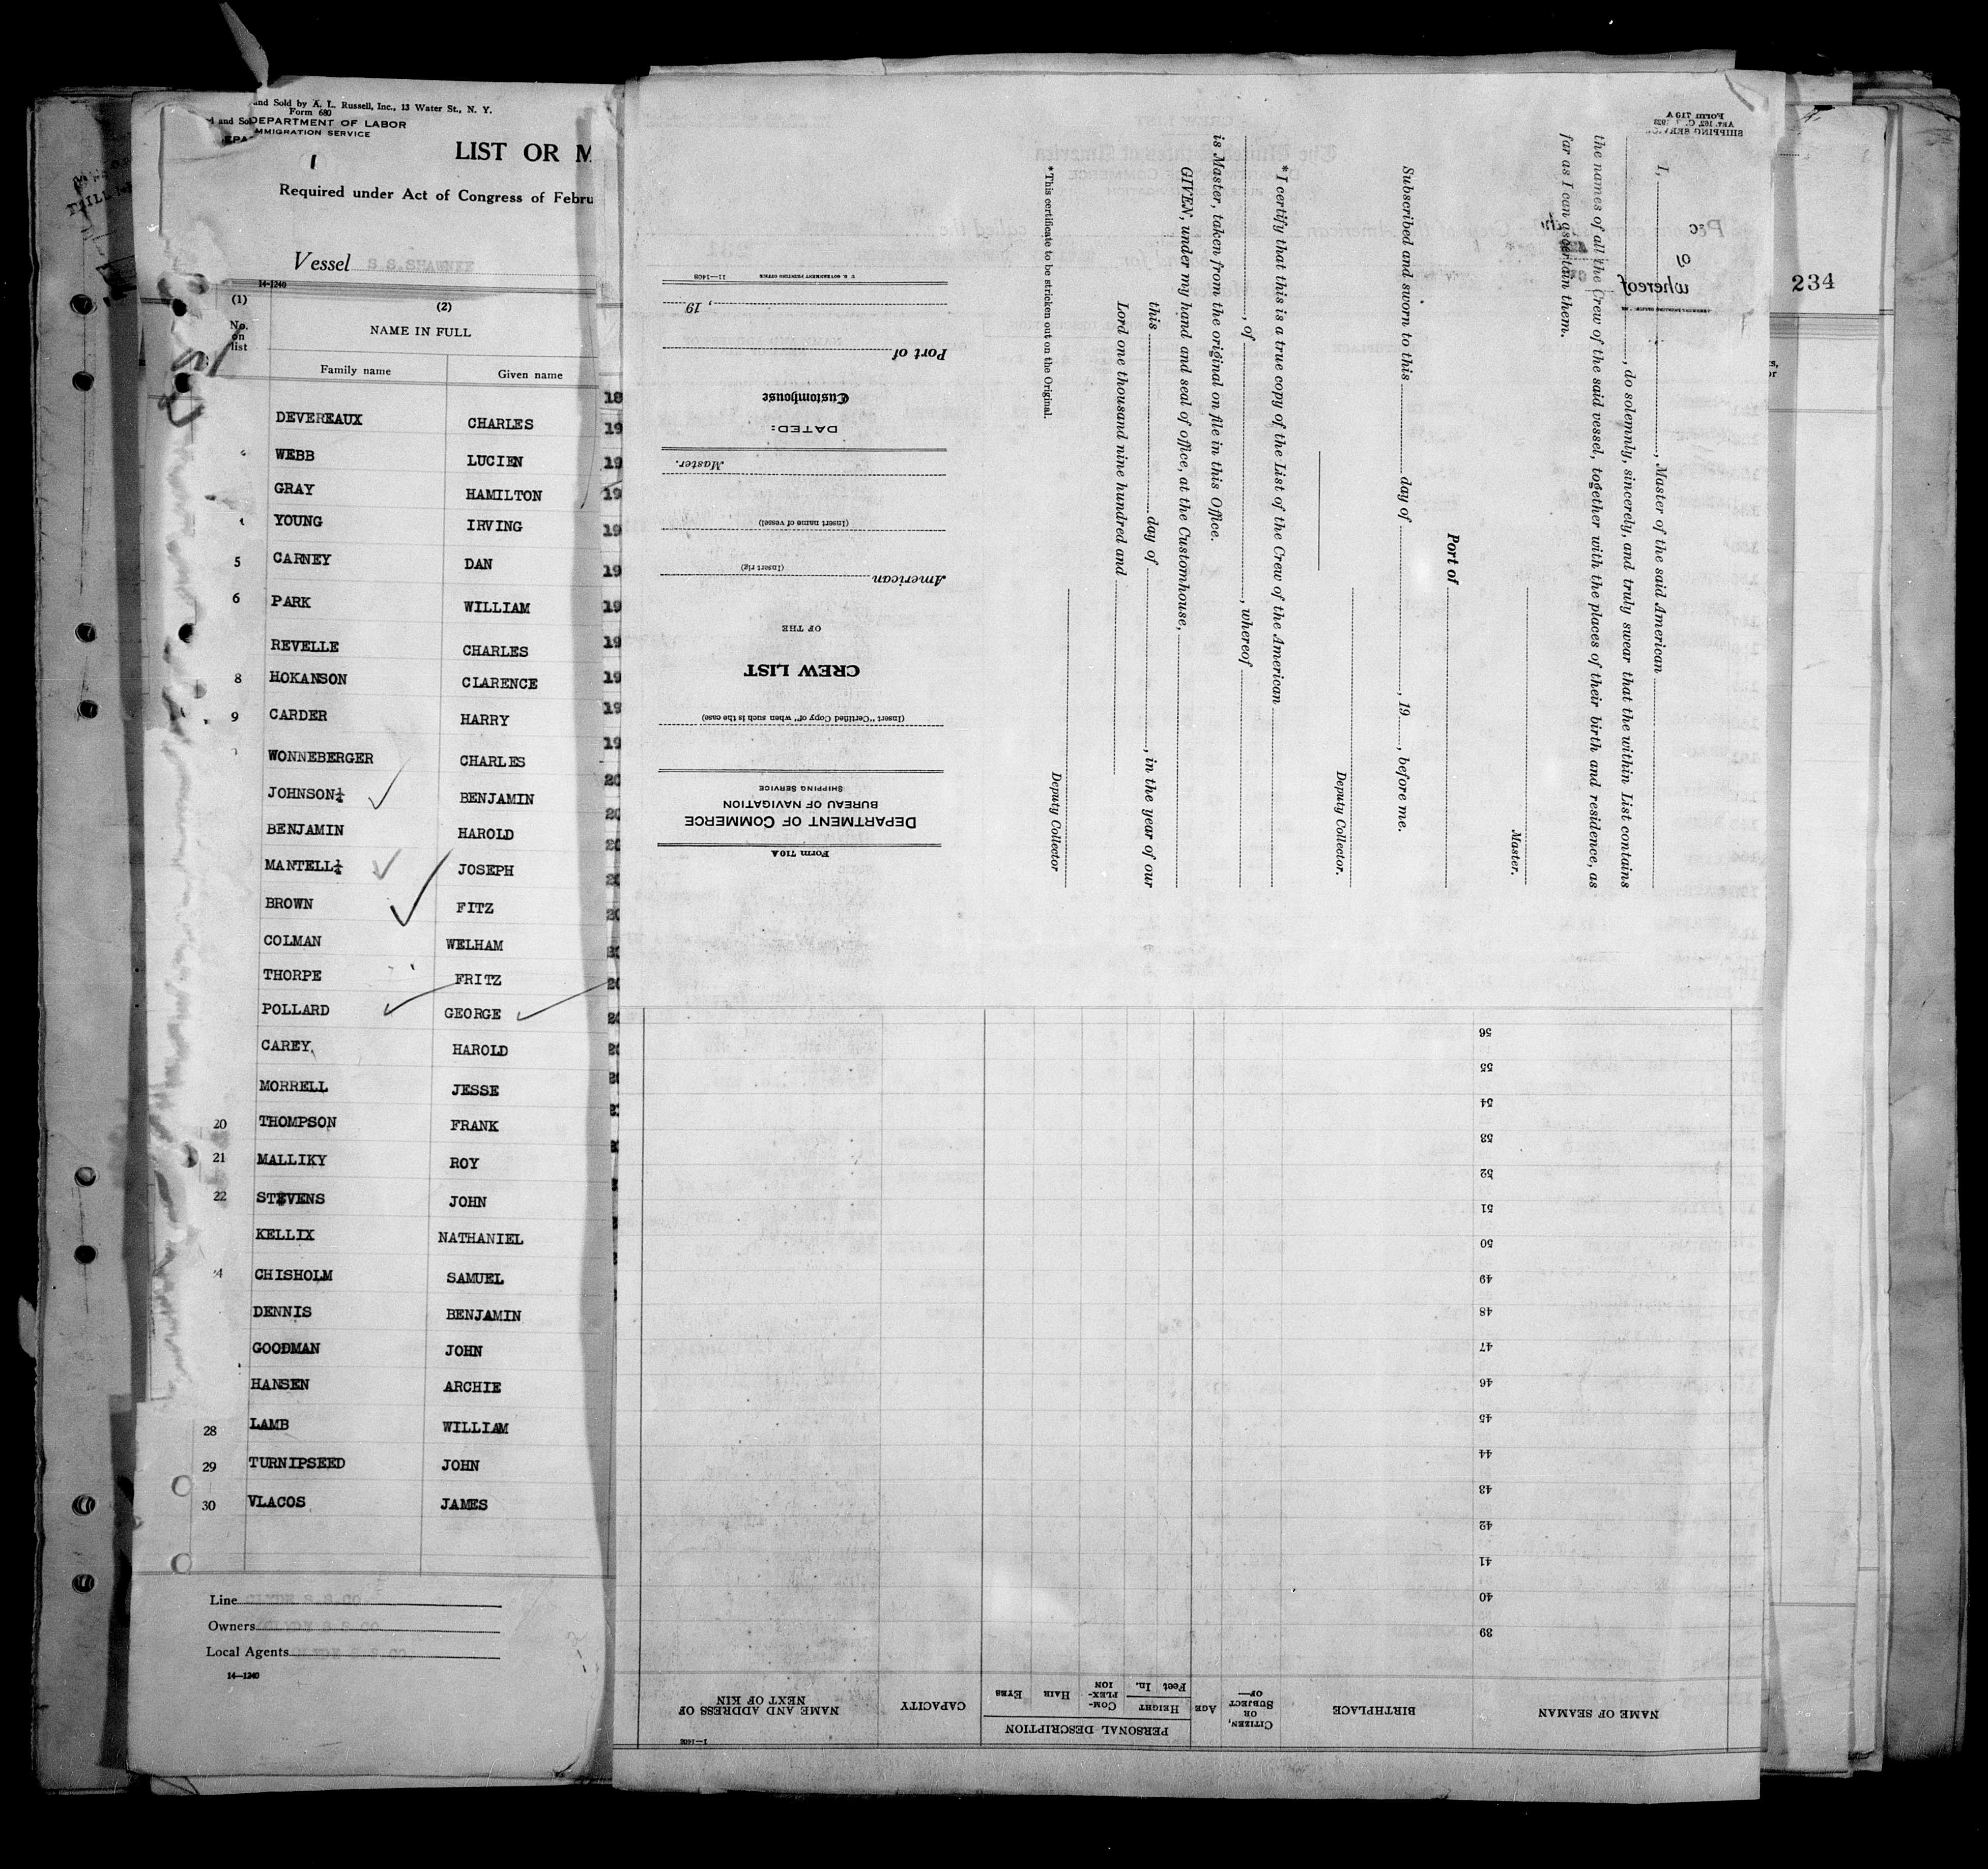 and Sold by A. L. Russell, Inc., 13 Water St., N. Y.
Form 680
DEPARTMENT OF LABOR
IMMIGRATION SERVICE
1
LIST OR M
Required under Act of Congress of Febru
Vessel S S. SHAWNEE
14-1240
(1) (2)
No. on list
NAME IN FULL
Family name Given name
DEVEREAUX CHARLES
WEBB LUCIEN
GRAY HAMILTON
YOUNG IRVING
5 CARNEY DAN
6 PARK WILLIAM
REVELLE CHARLES
8 HOKANSON CLARENCE
9 CARDER HARRY
WONNEBERGER CHARLES
JOHNSON BENJAMIN
BENJAMIN HAROLD
MANTELL JOSEPH
BROWN FITZ
COLMAN WELHAM
THORPE FRITZ
POLLARD GEORGE
CAREY HAROLD
MORRELL JESSE
20 THOMPSON FRANK
21 MALLIKY ROY
22 STEVENS JOHN
KELLIX NATHANIEL
4 CHISHOLM SAMUEL
DENNIS BENJAMIN
GOODMAN JOHN
HANSEN ARCHIE
28 LAMB WILLIAM
29 TURNIPSEED JOHN
30 VLACOS JAMES
Line
Owners
Local Agents
14-1240
234
I, , Master of the said American
, do solemnly, sincerely, and truly swear that the within List contains
the names of all the Crew of the said vessel, together with the places of their birth and residence, as
far as I can ascertain them.
Master.
Port of
Subscribed and sworn to this day of , 19 , before me.
Deputy Collector.
*I certify that this is a true copy of the List of the Crew of the American
, of , whereof
is Master, taken from the original on file in this Office.
GIVEN, under my hand and seal of office, at the Customhouse,
this day of , in the year of our
Lord one thousand nine hundred and
Deputy Collector
*This certificate to be stricken out on the Original.
Form 710A
DEPARTMENT OF COMMERCE
BUREAU OF NAVIGATION
SHIPPING SERVICE
(Insert "Certified Copy of" when such is the case)
CREW LIST
OF THE
American
(Insert rig)
(Insert name of vessel)
Master.
DATED:
Customhouse
Port of
, 19
U. S. GOVERNMENT PRINTING OFFICE 11-1408
NAME OF SEAMAN
BIRTHPLACE
CITIZEN, OR SUBJECT OF—
AGE
PERSONAL DESCRIPTION
HEIGHT
Feet In.
COM-PLEX-ION
HAIR
EYES
CAPACITY
NAME AND ADDRESS OF NEXT OF KIN
39
40
41
42
43
44
45
46
47
48
49
50
51
52
53
54
55
56